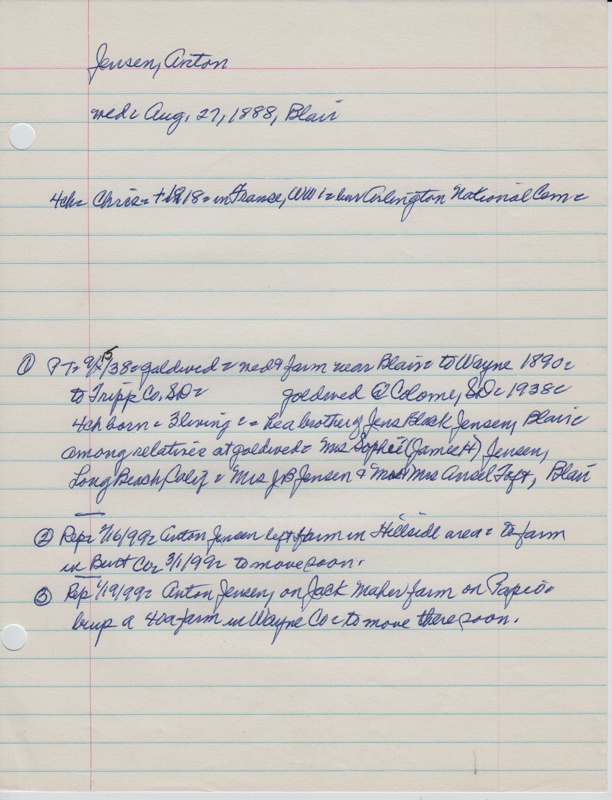 Jensen, Anton
wed= Aug. 27, 1888, Blair
4ch= Chris= +1918= in France, WW1= bur Arlington National Cem=
① PT= 9/15/38= goldwed= wed & farm near Blair= to Wayne 1890=
to Tripp Co. SD= goldwed @ Colome, SD= 1938=
4ch born= 3 living = he a brother of Jens Black Jensen, Blair=
among relatives at goldwed= Mrs Sophie (Jamie H) Jensen,
Long Beach Calif = Mrs JB Jensen & Mrs Ansel Taft, Blair
② Rep= 2/16/99= Anton Jensen left farm in Hillside area= to farm
in Burt Co= 3/1/99= to move soon.
③ Rep 1/19/99= Anton Jensen, on Jack Maher farm on Papio=
buys a 40a farm in Wayne Co= to move there soon.